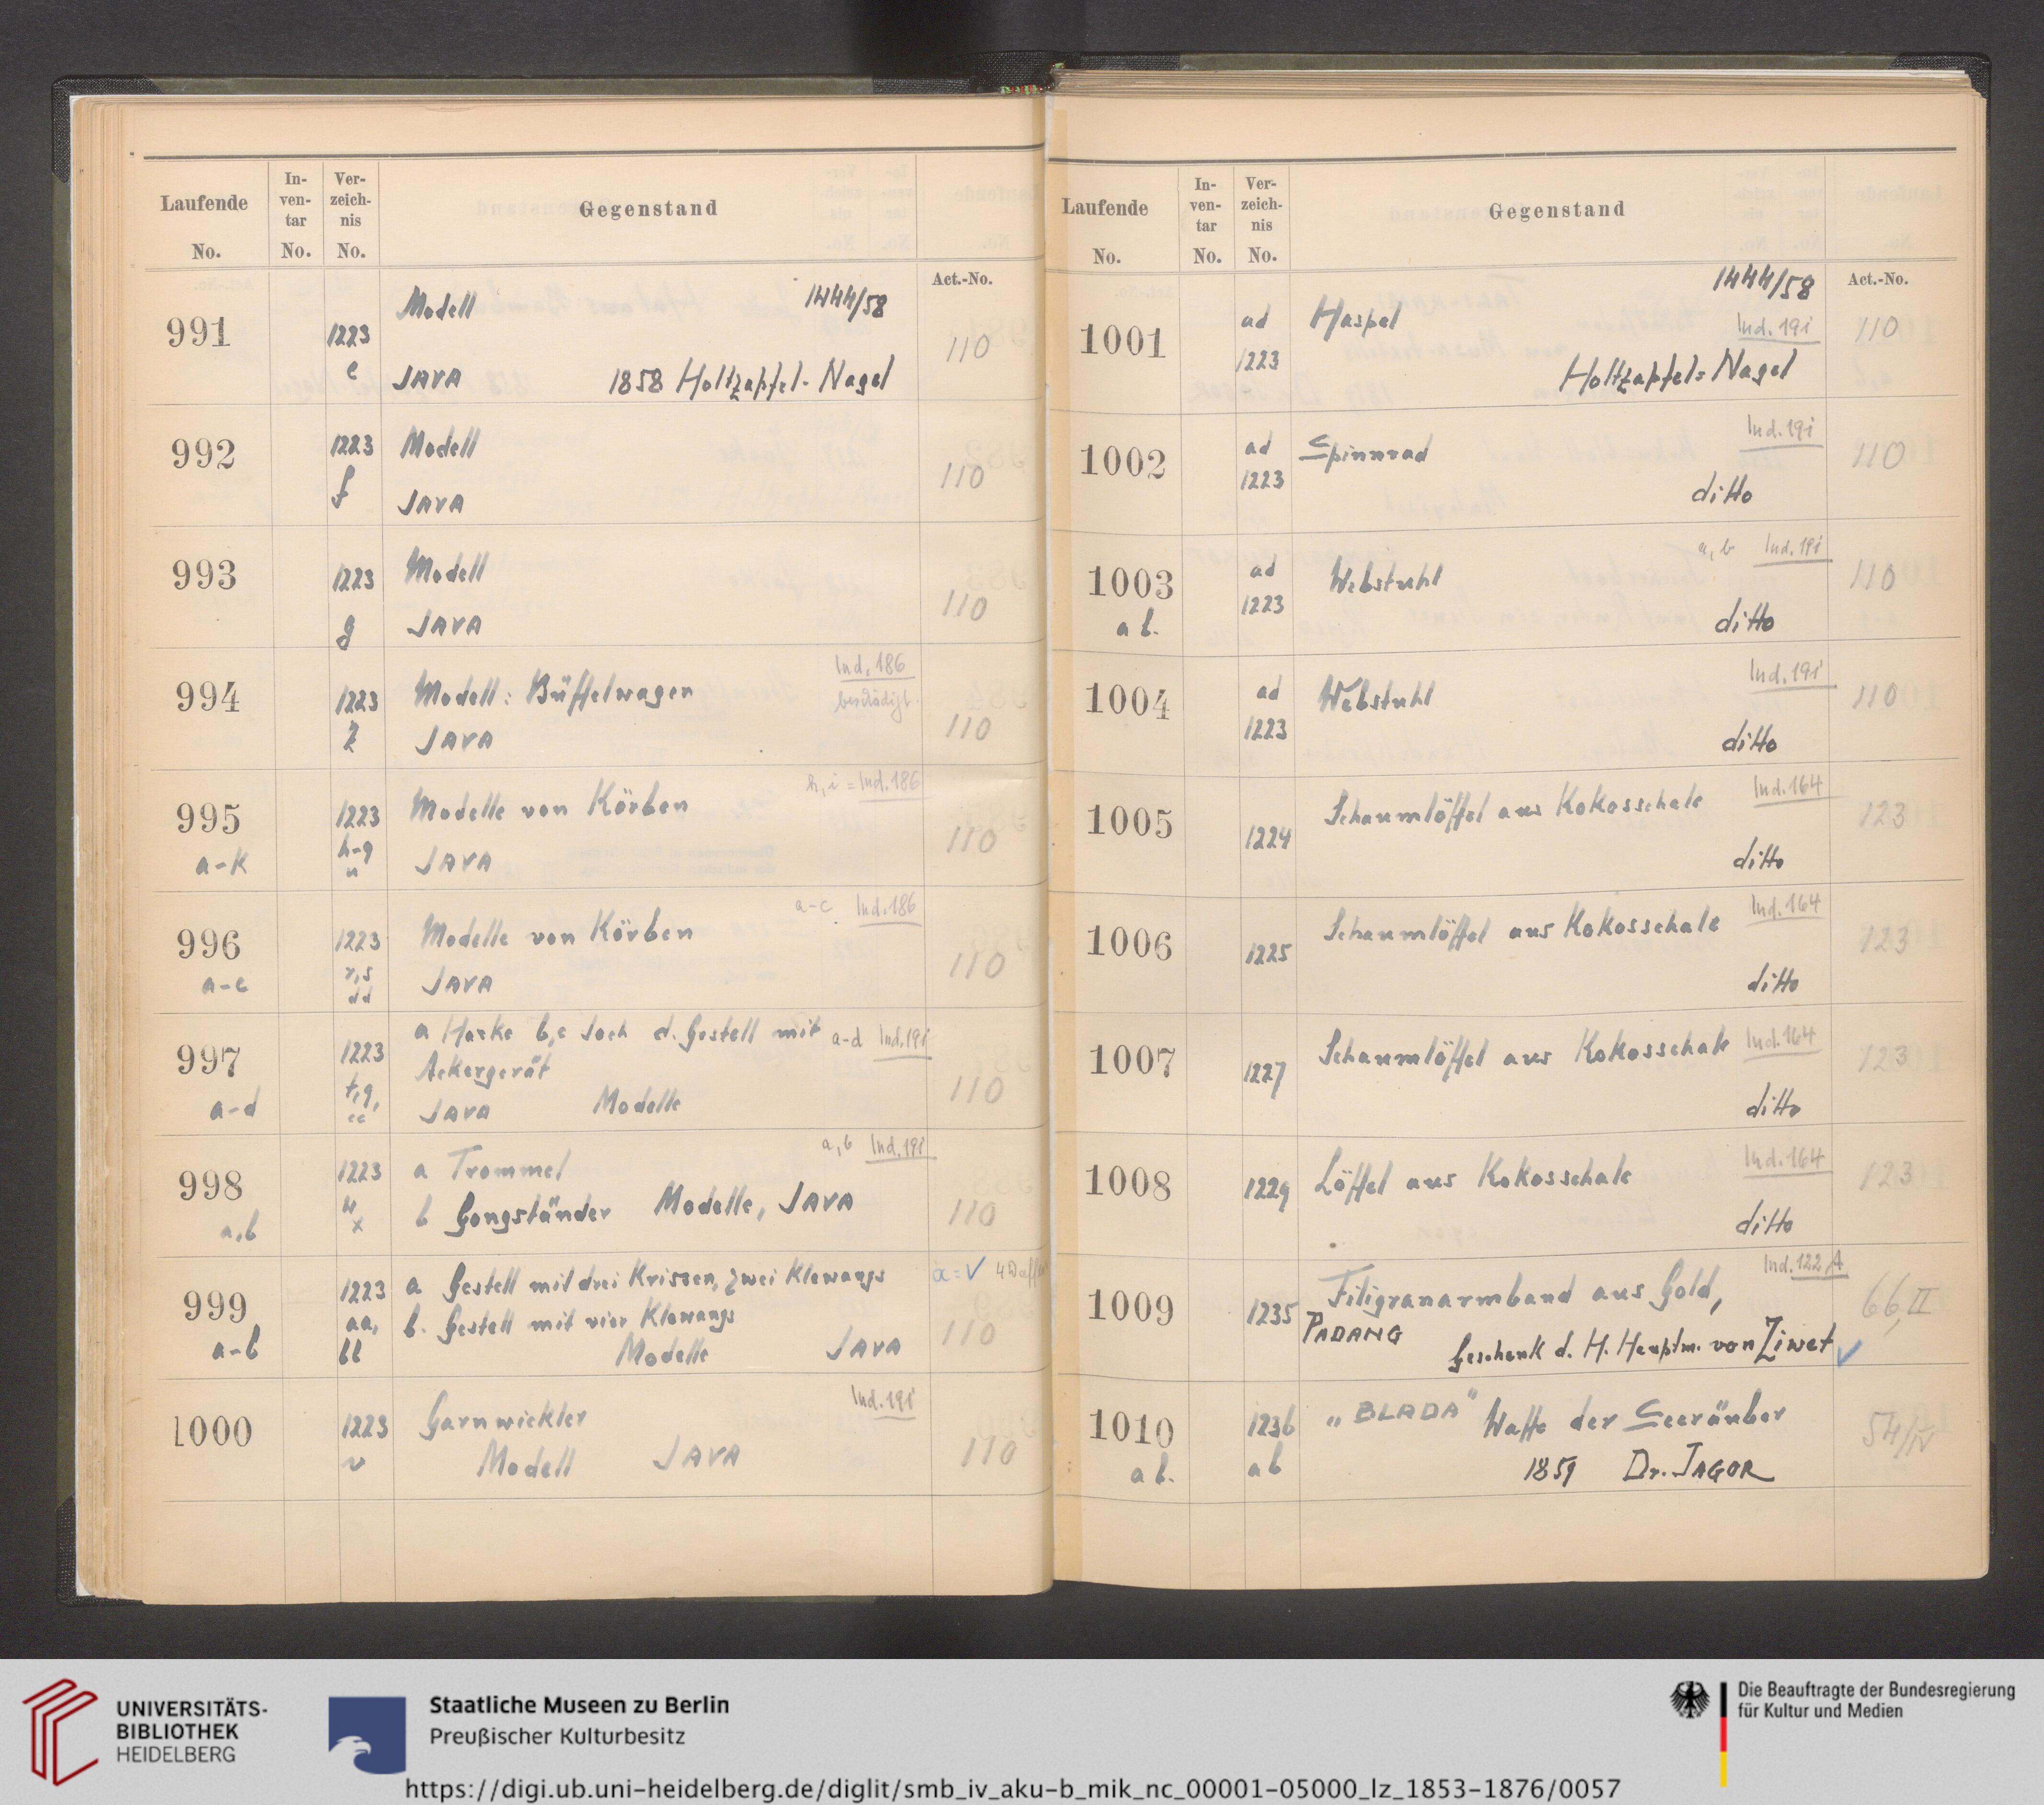 Laufende No.
In-ven-tar No.
Ver-zeich-nis No.
Gegenstand
Act.-No.
991
1223 e
Modell 1444/58
JAVA 1858 Holtzapfel-Nagel
110
992
1223 f
Modell
JAVA
110
993
1223 g
Modell
JAVA
110
994
1223 z
Modell: Büffelwagen
Ind. 186
beschädigt.
JAVA
110
995
a-k
1223
h-q
u
Modelle von Körben
h, i = Ind. 186
JAVA
110
996
a-c
1223
r,s
dd
Modelle von Körben
a-c Ind. 186
JAVA
110
997
a-d
1223
cc
a Harke b,c Joch d. Gestell mit
a-d Ind. 19i
Ackergerät
JAVA Modelle
110
998
a,b
1223
x
a Trommel
a,b Ind. 19i
b Gongständer Modelle, JAVA
110
999
a-b
1223
aa,
bb
a Gestell mit drei Krissen, zwei Klewangs
a = V
b. Gestell mit vier Klewangs
Modelle JAVA
110
1000
1223
v
Garnwickler
Ind. 19i
Modell JAVA
110
Laufende No.
In-ven-tar No.
Ver-zeich-nis No.
Gegenstand
Act.-No.
1001
ad
1223
1444/58
Haspel
Ind. 19i
Holtzapfel=Nagel
110
1002
ad
1223
Spinnrad
Ind. 19i
ditto
110
1003
a b.
ad
1223
Webstuhl
a, b Ind. 19i
ditto
110
1004
ad
1223
Webstuhl
Ind. 19i
ditto
110
1005
1224
Schaumlöffel aus Kokosschale
Ind. 164
ditto
123
1006
1225
Schaumlöffel aus Kokosschale
Ind. 164
ditto
123
1007
1227
Schaumlöffel aus Kokosschale
Ind. 164
ditto
123
1008
1229
Löffel aus Kokosschale
Ind. 164
ditto
123
1009
1235
Ind. 122 A
Filigranarmband aus Gold,
PADANG
Geschenk d. H. Hauptm. von Ziwet
66, II
1010
a b.
1236
a b
„BLADA" Waffe der Seeräuber
1859 Dr. JAGOR
54/IV
UNIVERSITÄTS-
BIBLIOTHEK
HEIDELBERG
Staatliche Museen zu Berlin
Preußischer Kulturbesitz
Die Beauftragte der Bundesregierung
für Kultur und Medien
https://digi.ub.uni-heidelberg.de/diglit/smb_iv_aku-b_mik_nc_00001-05000_lz_1853-1876/0057